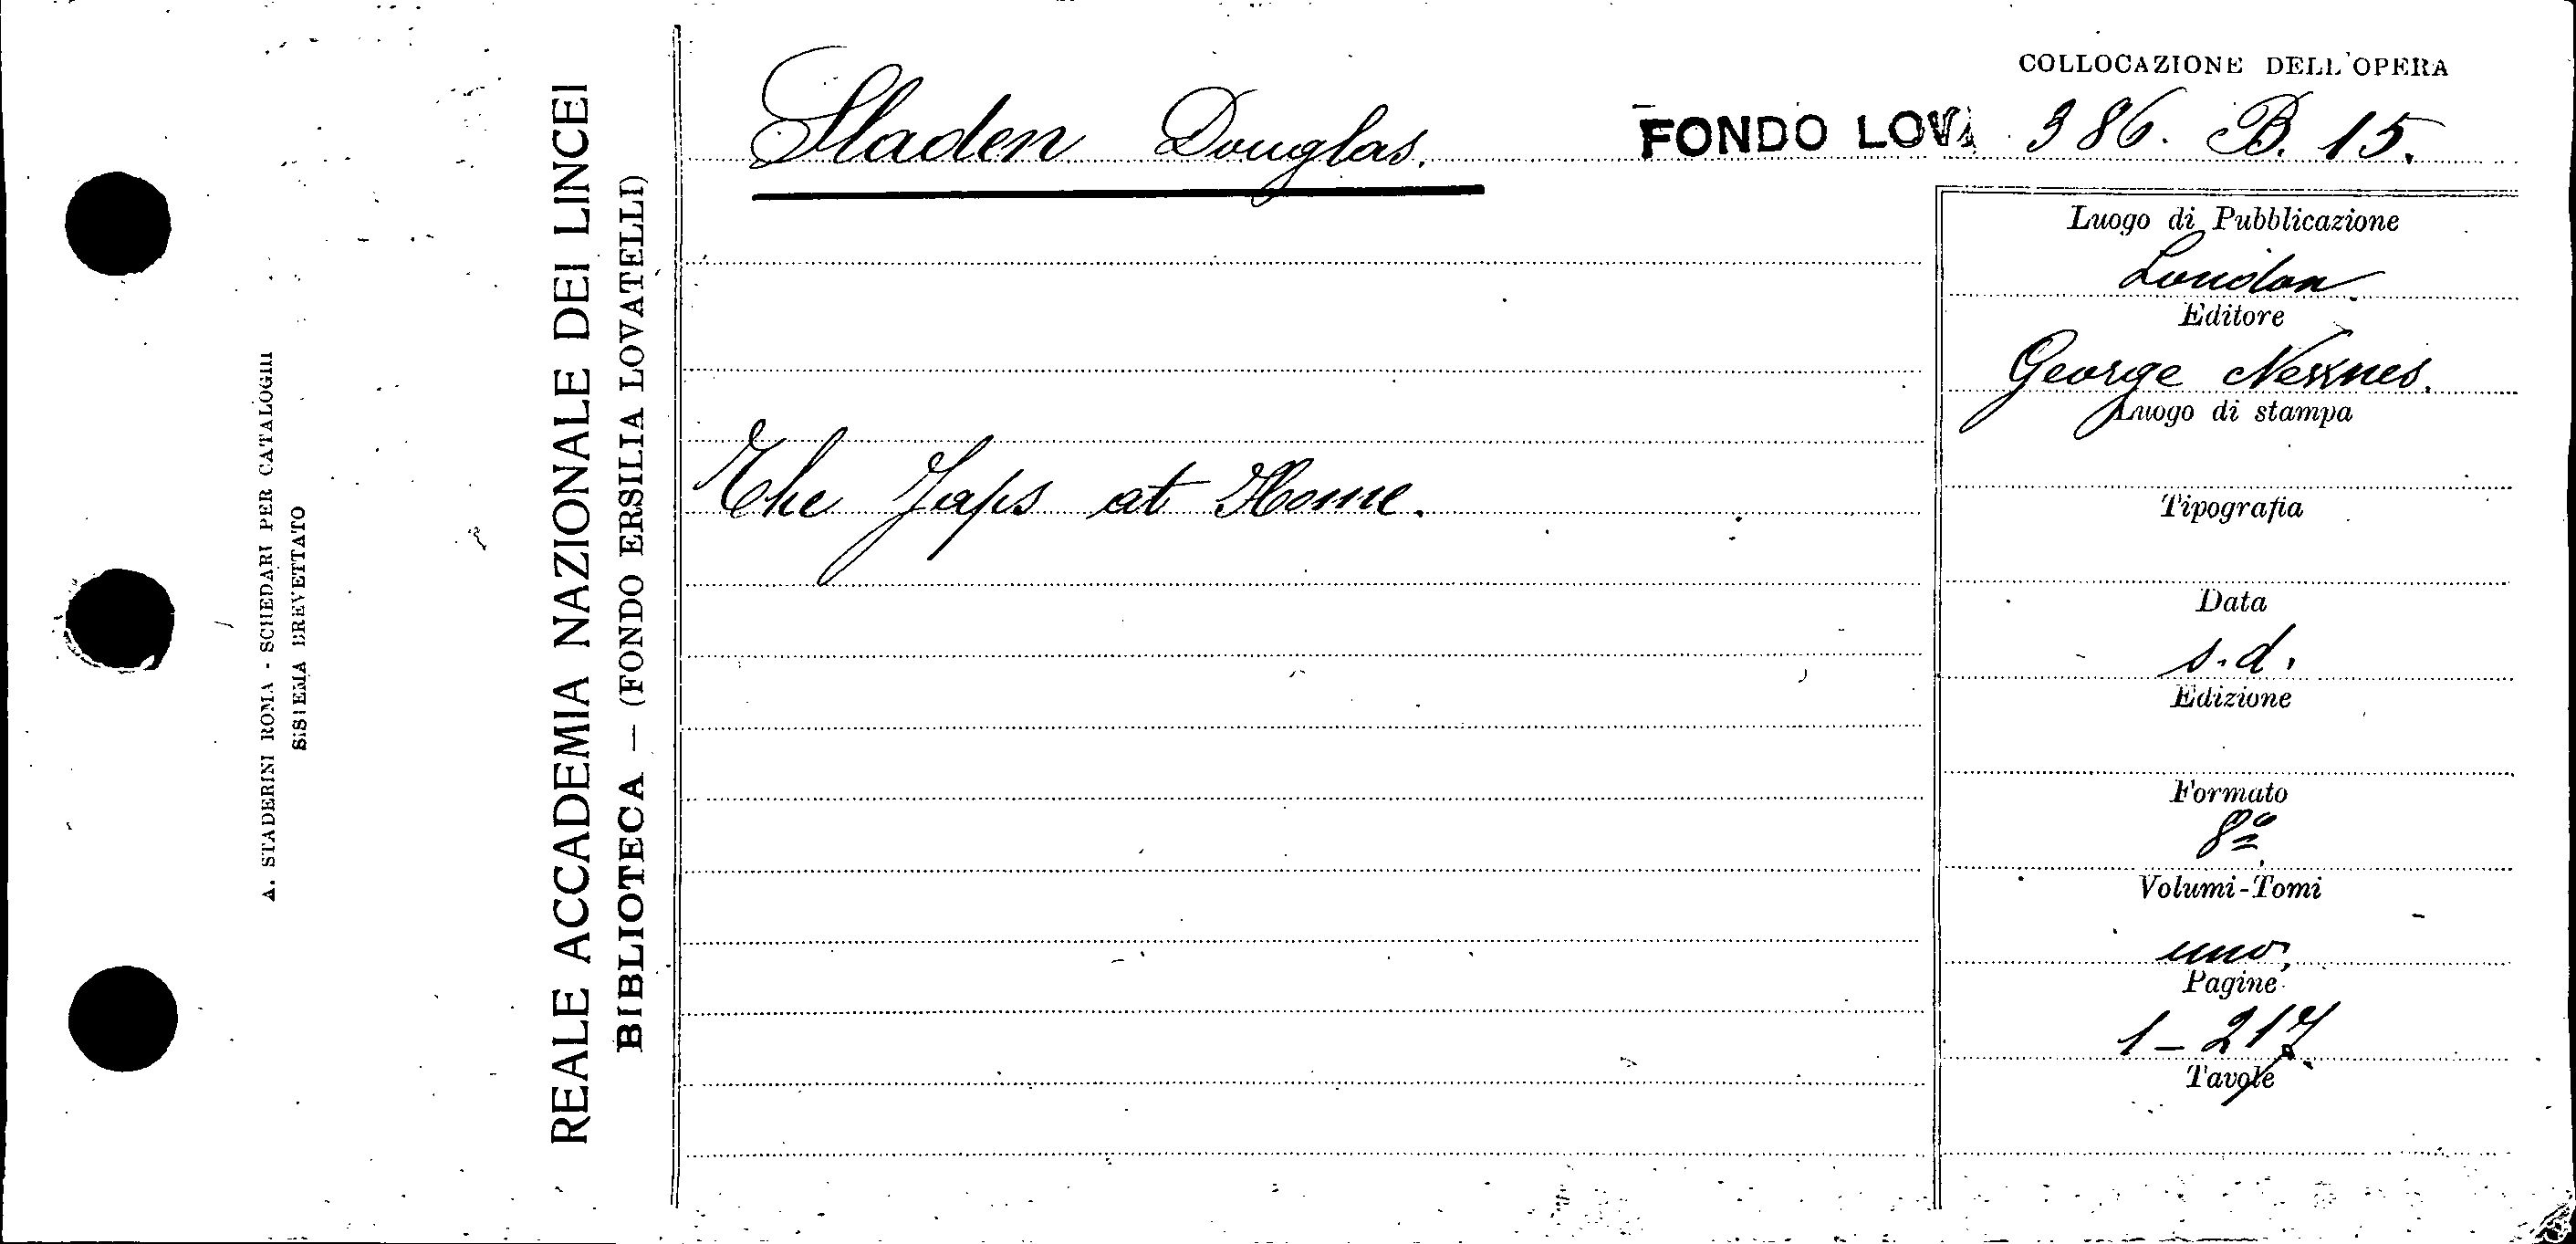 A. STADERINI ROMA - SCHEDARI PER CATALOGHI
SISTEMA BREVETTATO
REALE ACCADEMIA NAZIONALE DEI LINCEI
BIBLIOTECA — (FONDO ERSILIA LOVATELLI)
COLLOCAZIONE DELL'OPERA
Sladen Douglas. FONDO LOV. 386. B. 15.
The Japs at Home.
Luogo di Pubblicazione
London
Editore
George Newnes.
Luogo di stampa
Tipografia
Data
s.d.
Edizione
Formato
8º
Volumi-Tomi
uno,
Pagine
1-217
Tavole